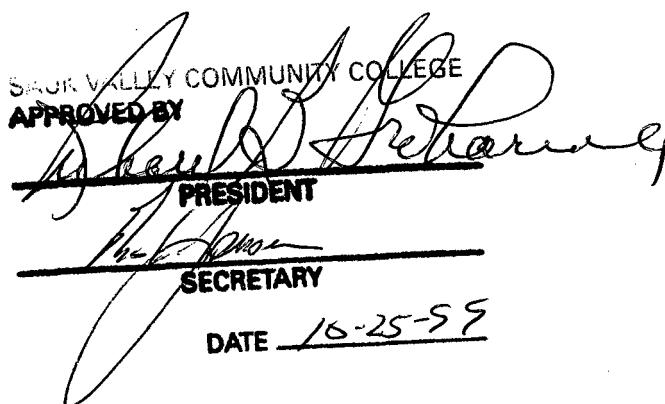 SAUK VALLEY COMMUNITY COLLEGE
APPROVED BY
PRESIDENT
SECRETARY
DATE 10-25-99